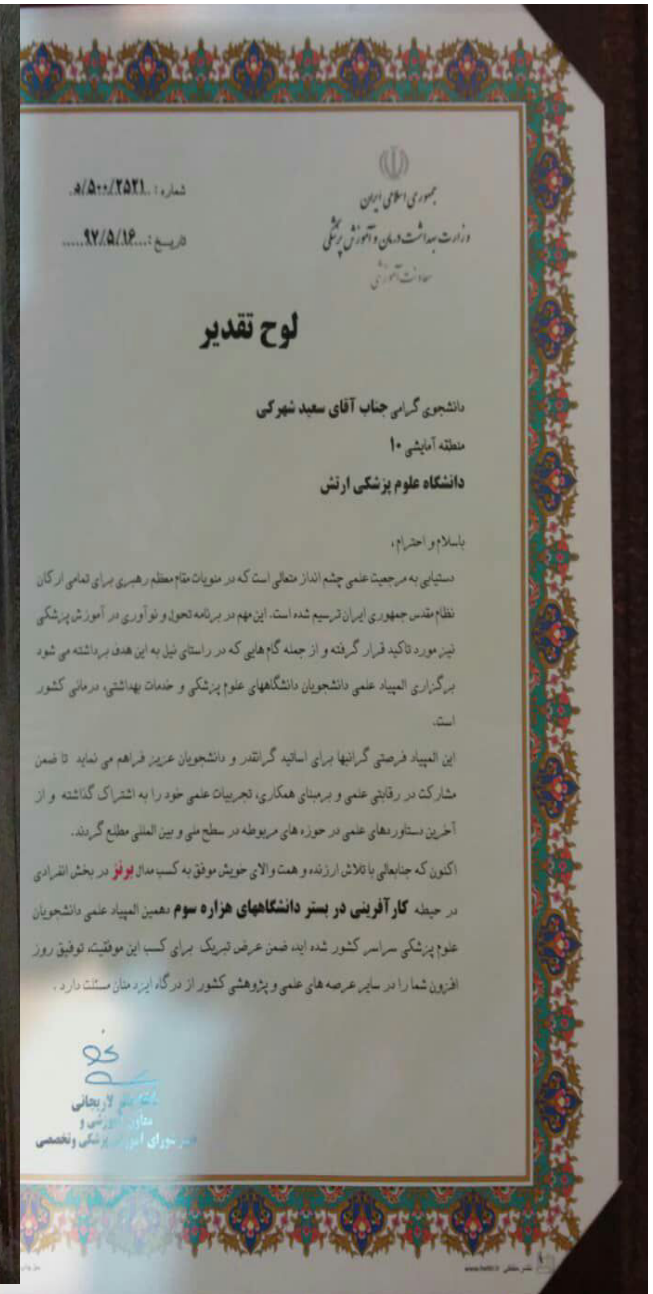 جمهوری اسلامی ایران
وزارت بهداشت درمان و آموزش پزشکی
معاونت آموزشی
شماره : ۲۵۲۱/۵۰۰/د
تاریخ : ۹۷/۵/۱۶
لوح تقدیر
دانشجوی گرامی جناب آقای سعید شهرکی
منطقه آمایشی ۱۰
دانشگاه علوم پزشکی ارتش
باسلام و احترام ،
دستیابی به مرجعیت علمی چشم انداز متعالی است که در منویات مقام معظم رهبری برای تمامی ارکان
نظام مقدس جمهوری ایران ترسیم شده است. این مهم در برنامه تحول و نوآوری در آموزش پزشکی
نیز مورد تاکید قرار گرفته و از جمله گام هایی که در راستای نیل به این هدف برداشته می شود
برگزاری المپیاد علمی دانشجویان دانشگاههای علوم پزشکی و خدمات بهداشتی، درمانی کشور
است.
این المپیاد فرصتی گرانبها برای اساتید گرانقدر و دانشجویان عزیز فراهم می نماید تا ضمن
مشارکت در رقابتی علمی و برمبنای همکاری، تجربیات علمی خود را به اشتراک گذاشته و از
آخرین دستاوردهای علمی در حوزه های مربوطه در سطح ملی و بین المللی مطلع گردند.
اکنون که جنابعالی با تلاش ارزنده و همت والای خویش موفق به کسب مدال برنز در بخش انفرادی
در حیطه کارآفرینی در بستر دانشگاههای هزاره سوم دهمین المپیاد علمی دانشجویان
علوم پزشکی سراسر کشور شده اید، ضمن عرض تبریک برای کسب این موفقیت، توفیق روز
افزون شما را در سایر عرصه های علمی و پژوهشی کشور از درگاه ایزد منان مسئلت دارد .
لاریجانی
معاون آموزشی و
دبیر شورای آموزش پزشکی وتخصصی